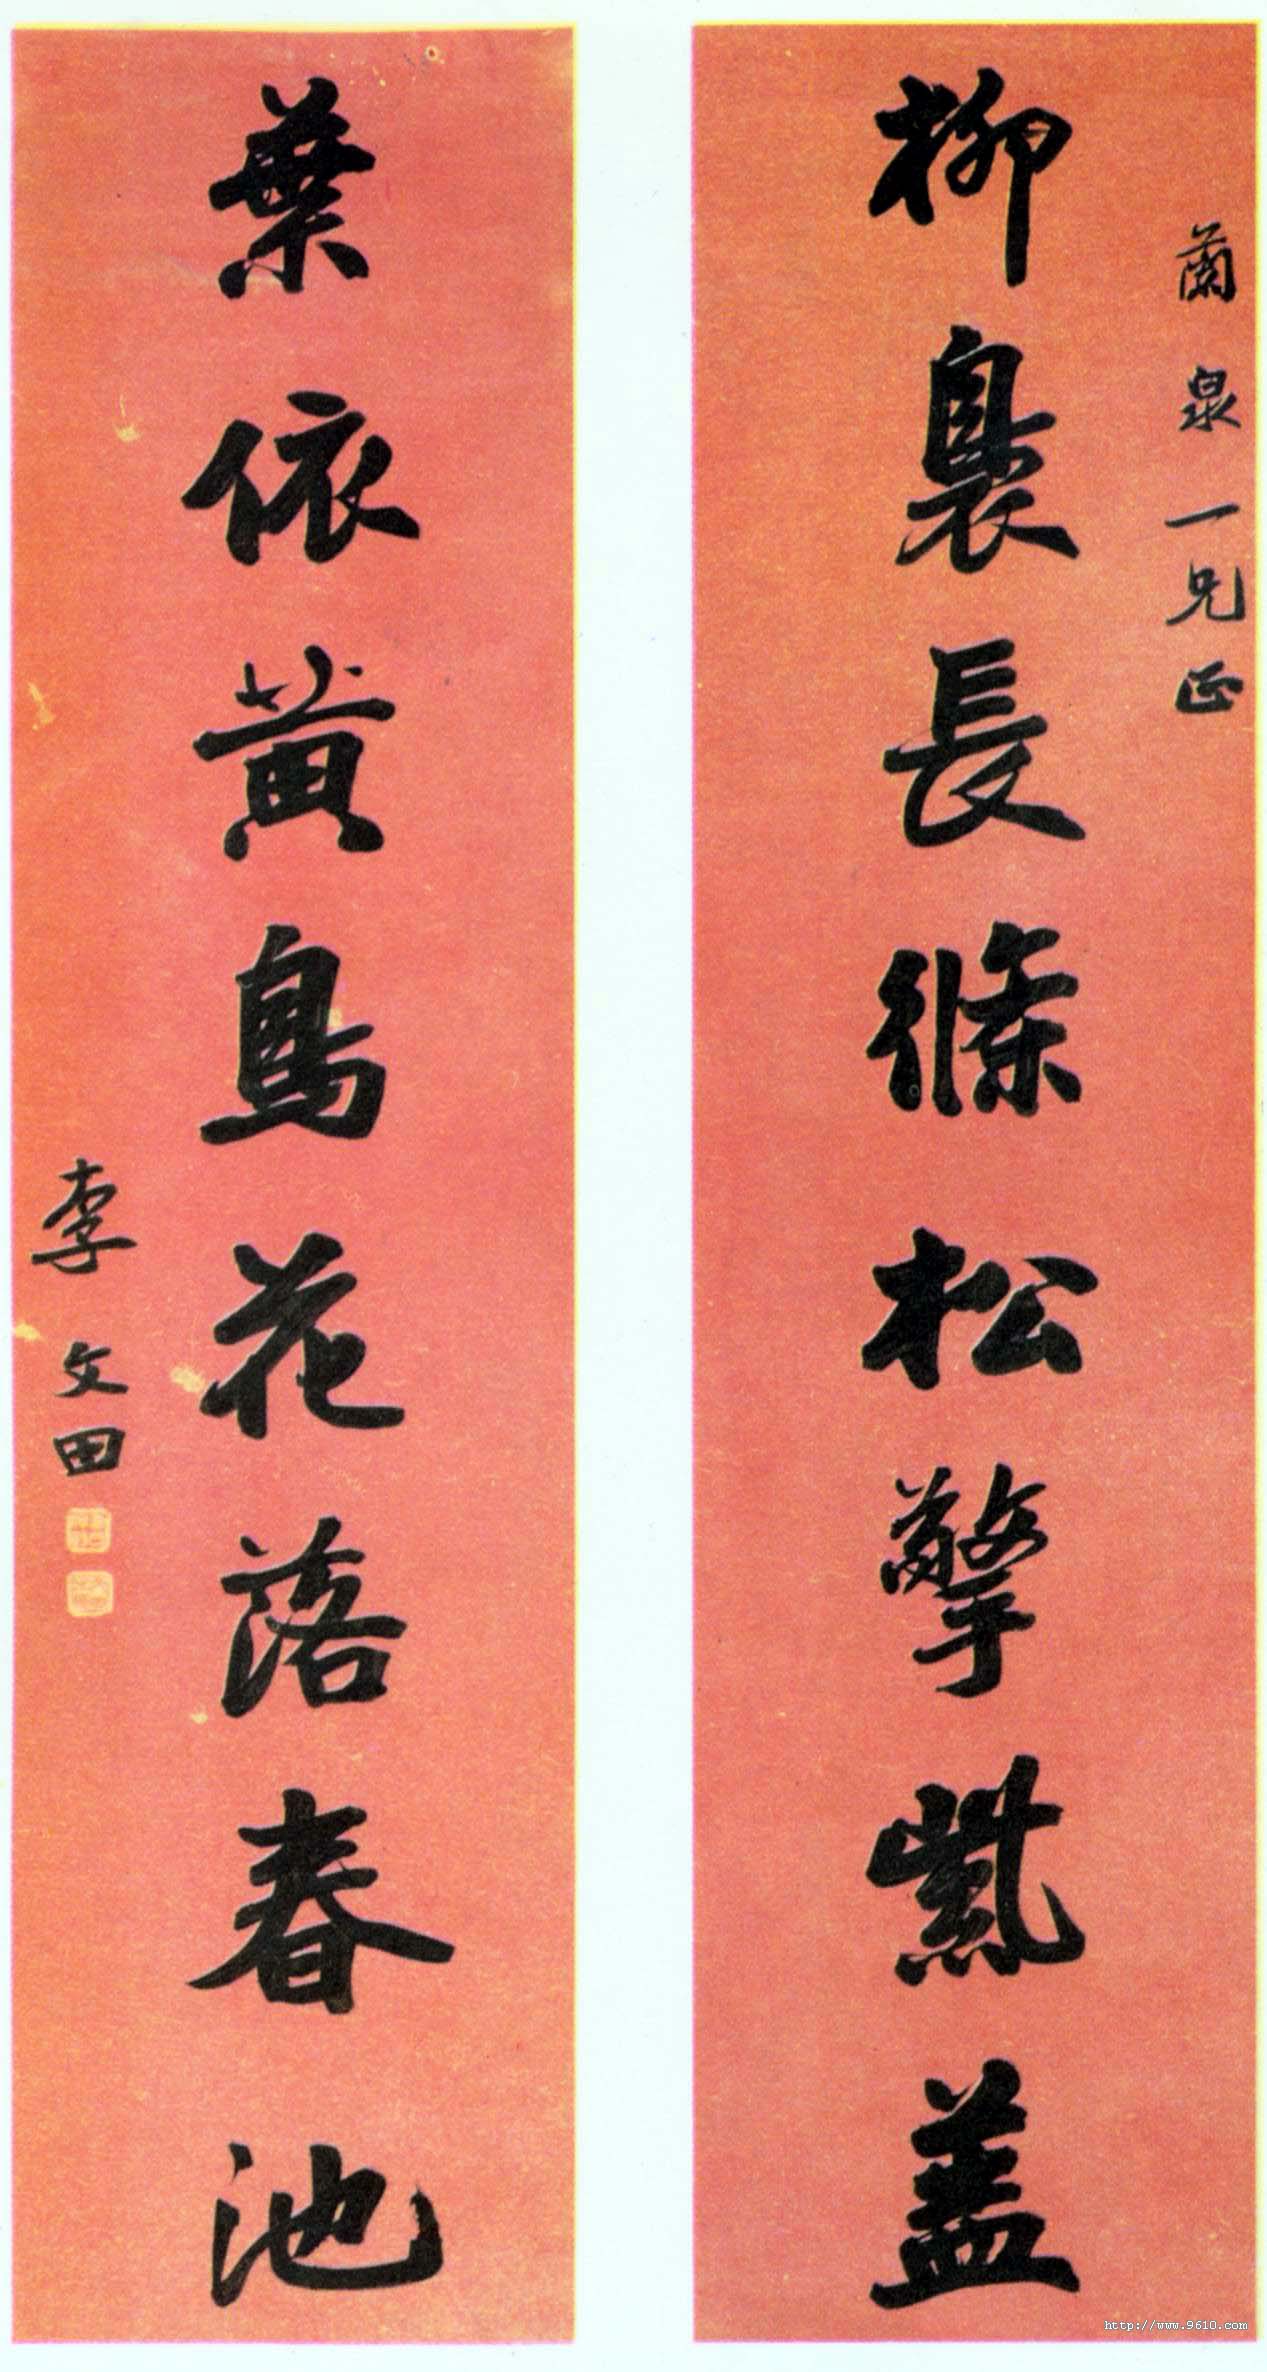 蘭泉一兄正
柳裊長條松擎紫蓋
葉依黃鳥花落春池
李文田
http://www.9610.com